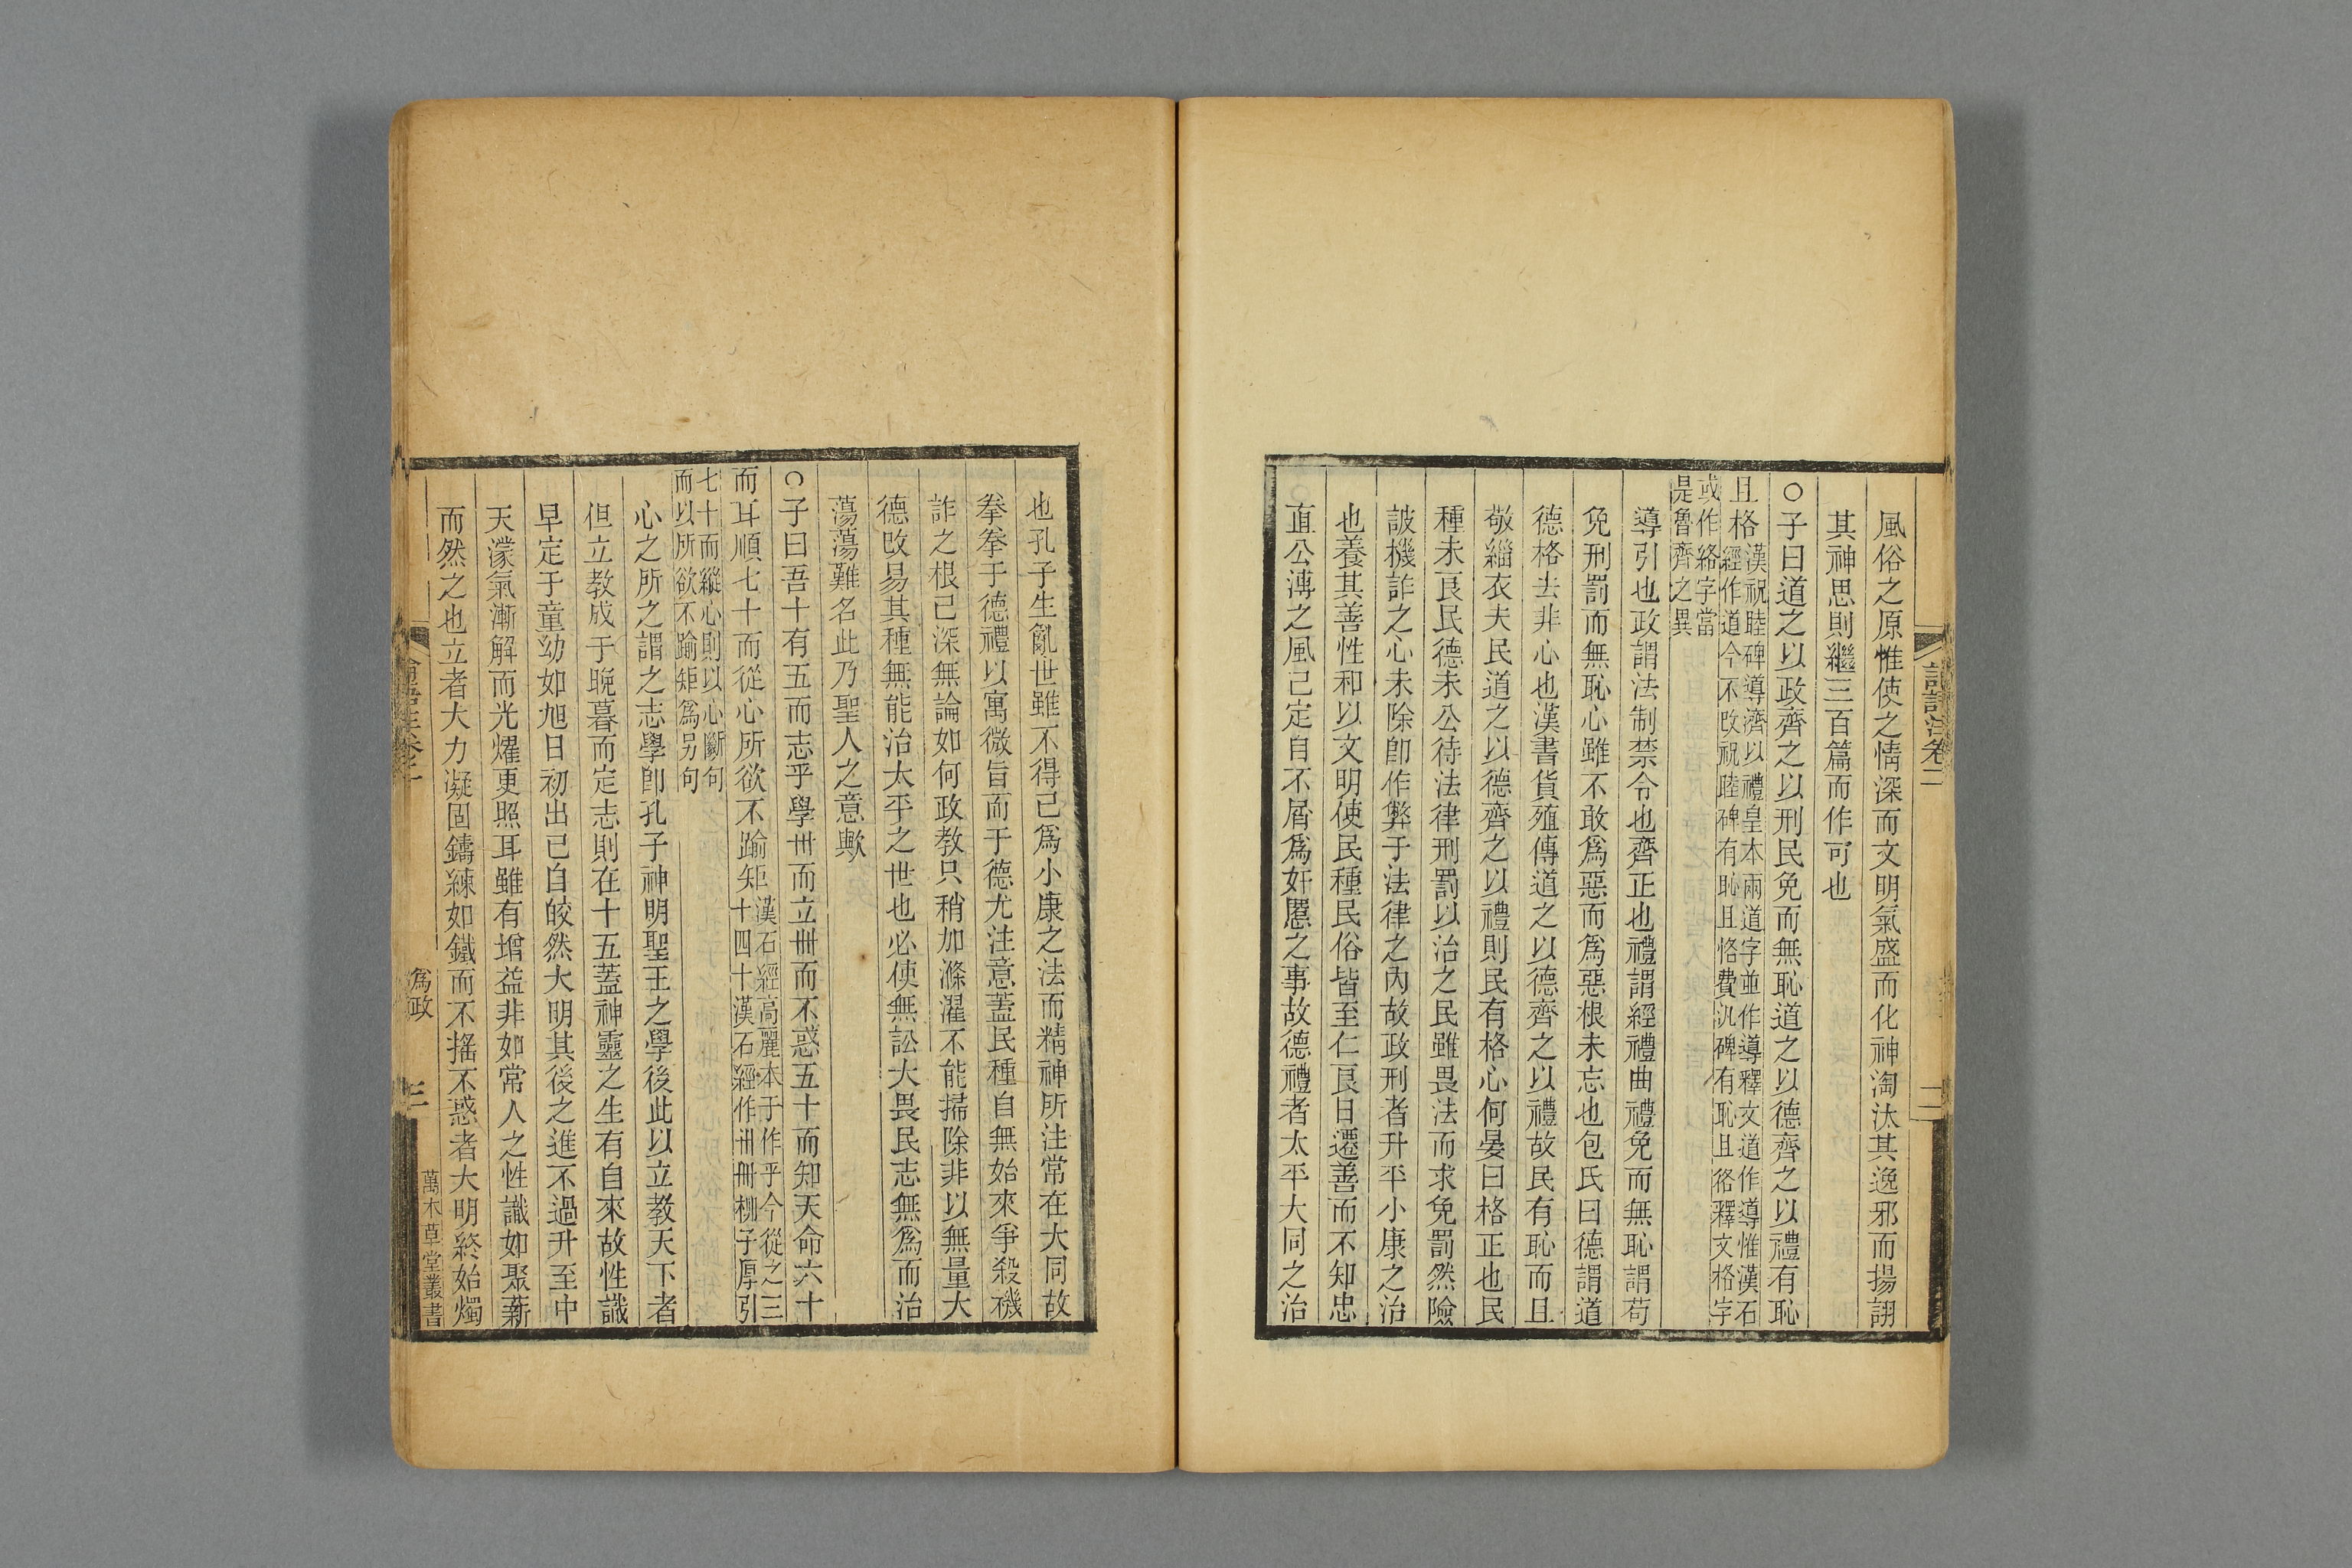 風俗之原惟使之情深而文明氣盛而化神淘汰其逸邪而揚詡
其神思則繼三百篇而作可也
○子曰道之以政齊之以刑民免而無恥道之以德齊之以禮有恥
且格
漢祝睦碑導濟以禮皇本兩道字並作導釋文道作導惟漢石
經作道今不改祝睦碑有恥且恪費汎碑有恥且㣟釋文格字
或作綹字當
是魯齊之異
導引也政謂法制禁令也齊正也禮謂經禮曲禮免而無恥謂苟
免刑罰而無恥心雖不敢爲惡而爲惡根未忘也包氏曰德謂道
德格去非心也漢書貨殖傳道之以德齊之以禮故民有恥而且
敬緇衣夫民道之以德齊之以禮則民有格心何晏曰格正也民
種未良民德未公待法律刑罰以治之民雖畏法而求免罰然險
詖機詐之心未除卽作弊于法律之內故政刑者升平小康之治
也養其善性和以文明使民種民俗皆至仁良日遷善而不知忠
直公溥之風已定自不屑爲奸慝之事故德禮者太平大同之治
語注卷二
二
也孔子生亂世雖不得已爲小康之法而精神所注常在大同故
拳拳于德禮以寓微旨而于德尤注意蓋民種自無始來爭殺機
詐之根已深無論如何政教只稍加滌濯不能掃除非以無量大
德改易其種無能治太平之世也必使無訟大畏民志無爲而治
蕩蕩難名此乃聖人之意歟
○子曰吾十有五而志乎學卅而立卌而不惑五十而知天命六十
而耳順七十而從心所欲不踰矩
漢石經高麗本于作乎今從之三
十四十漢石經作卅卌柳子厚引
七十而縱心則以心斷句
而以所欲不踰矩爲另句
心之所之謂之志學卽孔子神明聖王之學後此以立教天下者
但立教成于晚暮而定志則在十五蓋神靈之生有自來故性識
早定于童幼如旭日初出已自皎然大明其後之進不過升至中
天濛氣漸解而光燿更照耳雖有增益非如常人之性識如聚薪
而然之也立者大力凝固鑄練如鐵而不搖不惑者大明終始燭
爲政
三
萬木草堂叢書